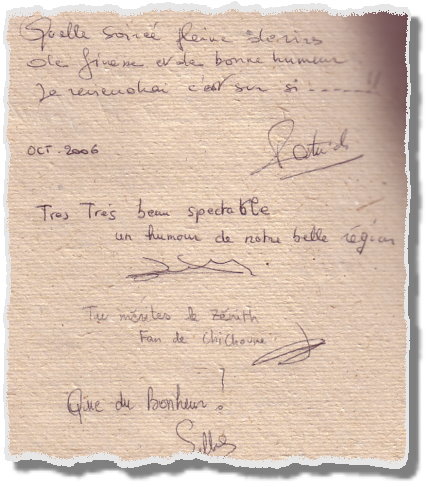 Quelle soirée pleine
de finesse et de bonne humeur
Je reviendrai c'est sur si ......!!
OCT. 2006
Patrick
Tres Trés beau spectable
un humour de notre belle région
Tu mérites le Zénith
Fan de "Chichourle"
Que du Bonheur !